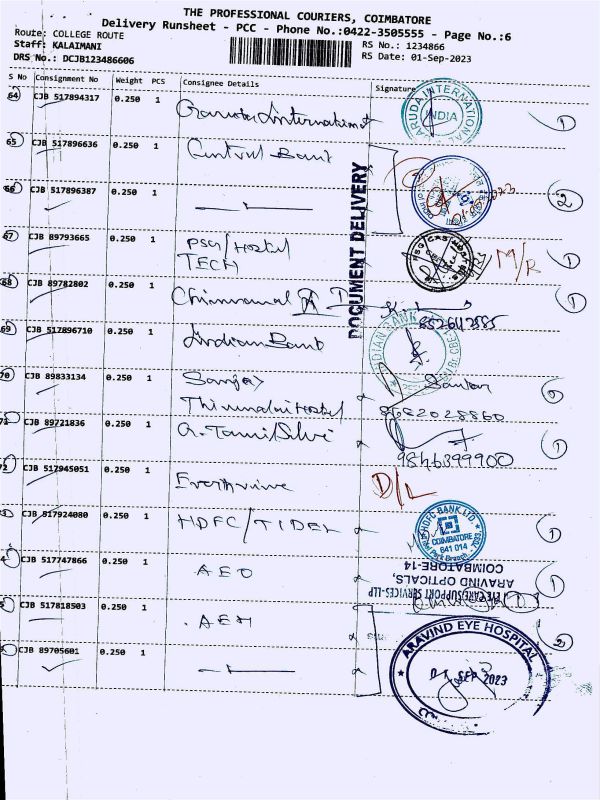 THE PROFESSIONAL COURIERS, COIMBATORE
Delivery Runsheet - PCC - Phone No.:0422-3505555 - Page No.:6
Route: COLLEGE ROUTE
Staff: KALAIMANI
DRS No.: DCJB123486606
RS No.: 1234866
RS Date: 01-Sep-2023
S No Consignment No Weight PCS Consignee Details Signature
64 CJB 517894317 0.250 1 International 1
RUDA INTERNATIONAL
INDIA
65 CJB 517896636 0.250 1 Central Bank
66 CJB 517896387 0.250 1 2
DOCUMENT DELIVERY
67 CJB 89793665 0.250 1 PSG/Hostel
TECH
M/R 1
68 CJB 89782802 0.250 1 1
69 CJB 517896710 0.250 1 Indian Bank
INDIAN BANK
70 CJB 89833134 0.250 1 Sanjay
Hostel
8682028860
CJB 89721836 0.250 1 G. Tamil Selvi 1
9846399900
CJB 517945051 0.250 1 D/L
CJB 517924080 0.250 1 HDFC/TIDEL 1
HDFC BANK LTD.
COIMBATORE
641 014
CJB 517747866 0.250 1 AEO 1
EYECARE SUPPORT SERVICES-LLP
ARAVIND OPTICALS,
COIMBATORE-14
CJB 517818503 0.250 1 AEH 2
CJB 89705601 0.250 1
ARAVIND EYE HOSPITAL
SEP 2023